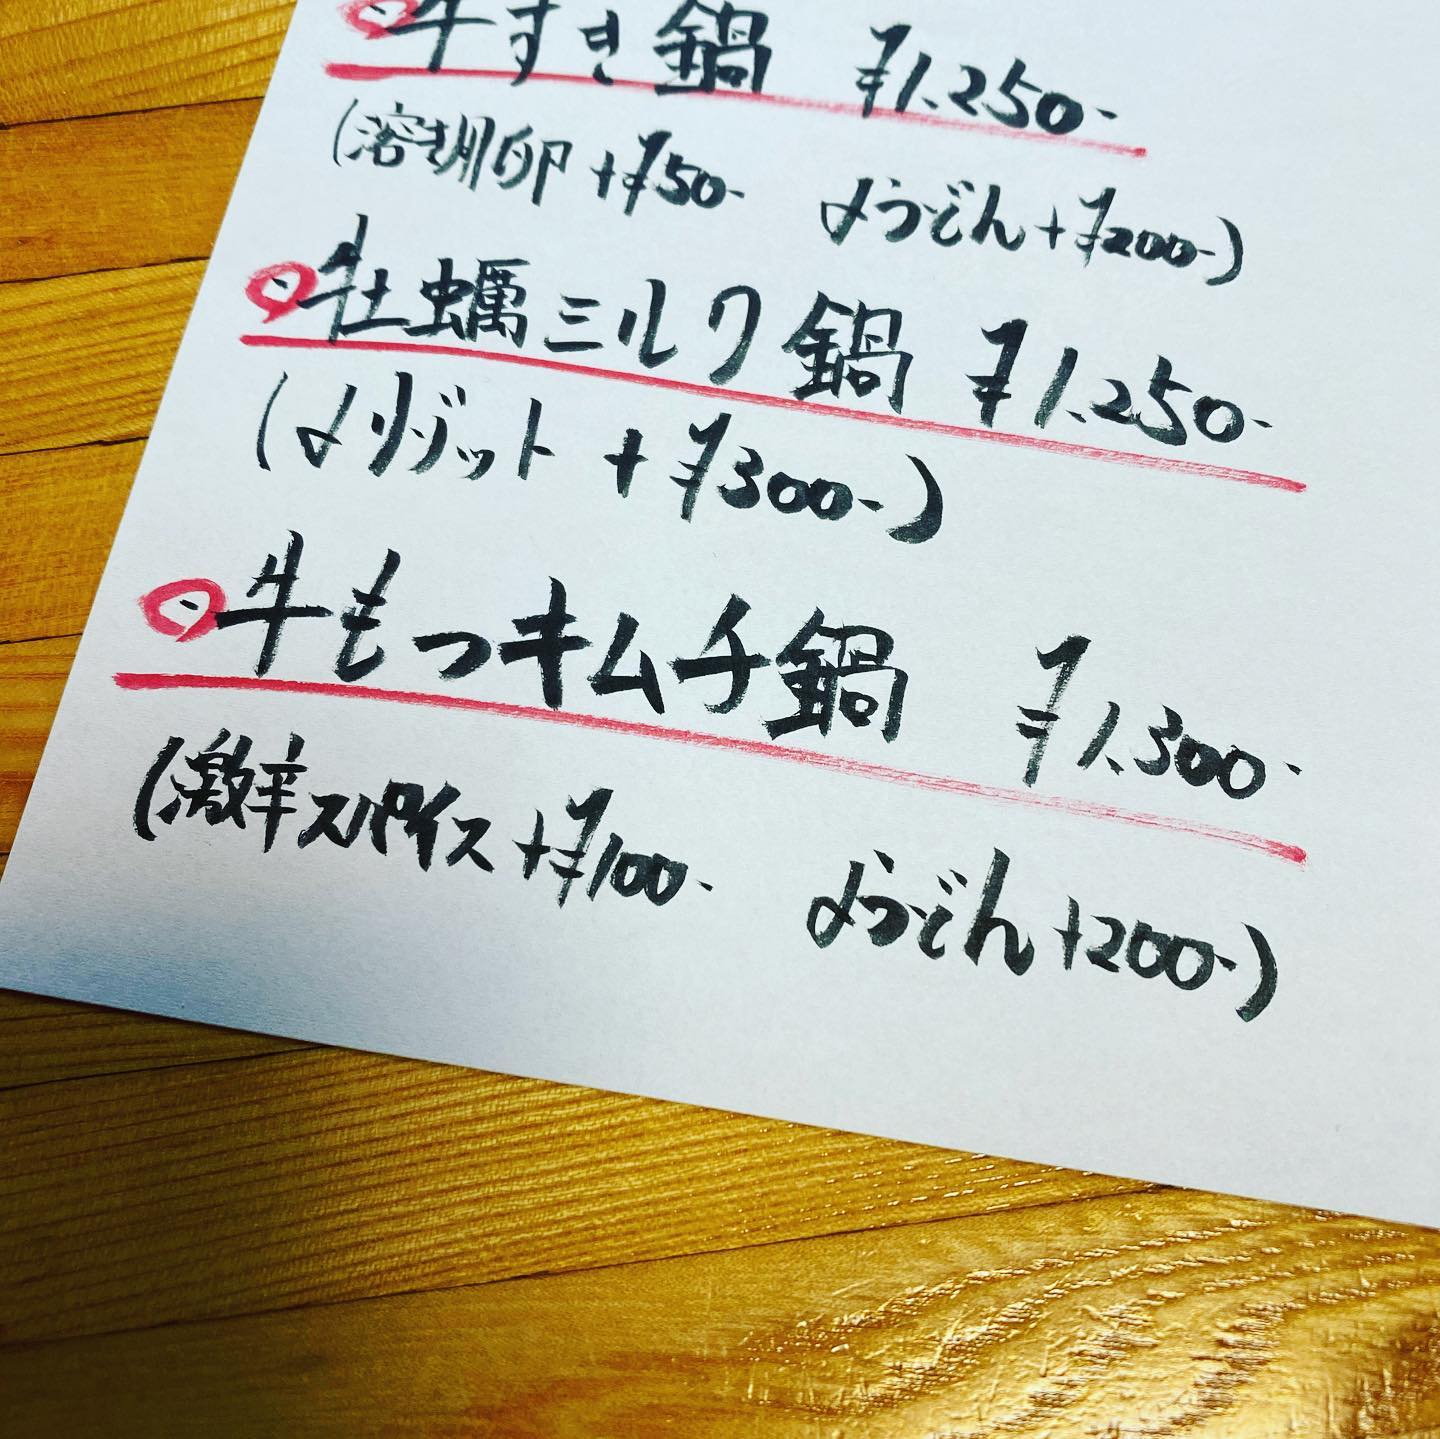 ・牛すき鍋 ¥1,250-
(溶き卵 +¥50- 〆うどん+¥200-)
・牡蠣ミルク鍋 ¥1,250-
(〆リゾット +¥300-)
・牛もつキムチ鍋 ¥1,300-
(激辛スパイス+¥100- 〆うどん+200-)